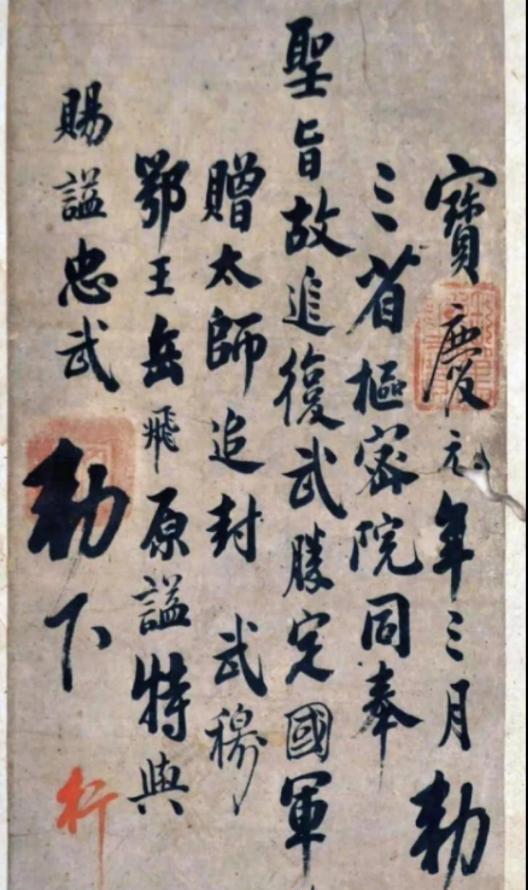 寶慶元年三月勅
三省樞密院同奉
聖旨故追復武勝定國軍
贈太師追封 武穆
鄂王岳飛原謚特與
賜謚忠武 勅下
行